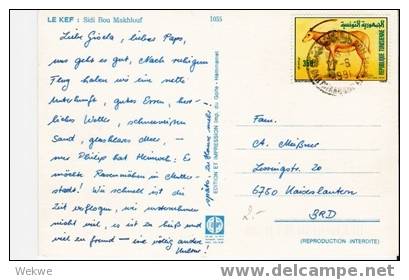 LE KEF : Sidi Bou Makhlouf 1055
Liebe Gisela, lieber Paps,
uns geht es gut. Nach ruhigem
Flug haben wir eine nette
Unterkunft, gutes Essen, herr-
liches Wetter, schneeweißen
Sand, glasklares Meer,
nur Philip hat Heimweh: Es
möchte Rasenmähen in Mutter-
stadt! Wie schnell ist die
Zeit verflogen, wir unternehmen
nicht viel, es ist zu heiß und
viel zu fremd – eine völlig andere
Kultur!
später, zu Hause mehr!
EDITION ET IMPRESSION Imp. du Golfe - Hammamet
الجمهورية التونسية
REPUBLIQUE TUNISIENNE
350
Fam.
A. Meißner
Lessingstr. 20
6750 Kaiserslautern
BRD
2.-
(REPRODUCTION INTERDITE)
Wekwe
delcampe.net